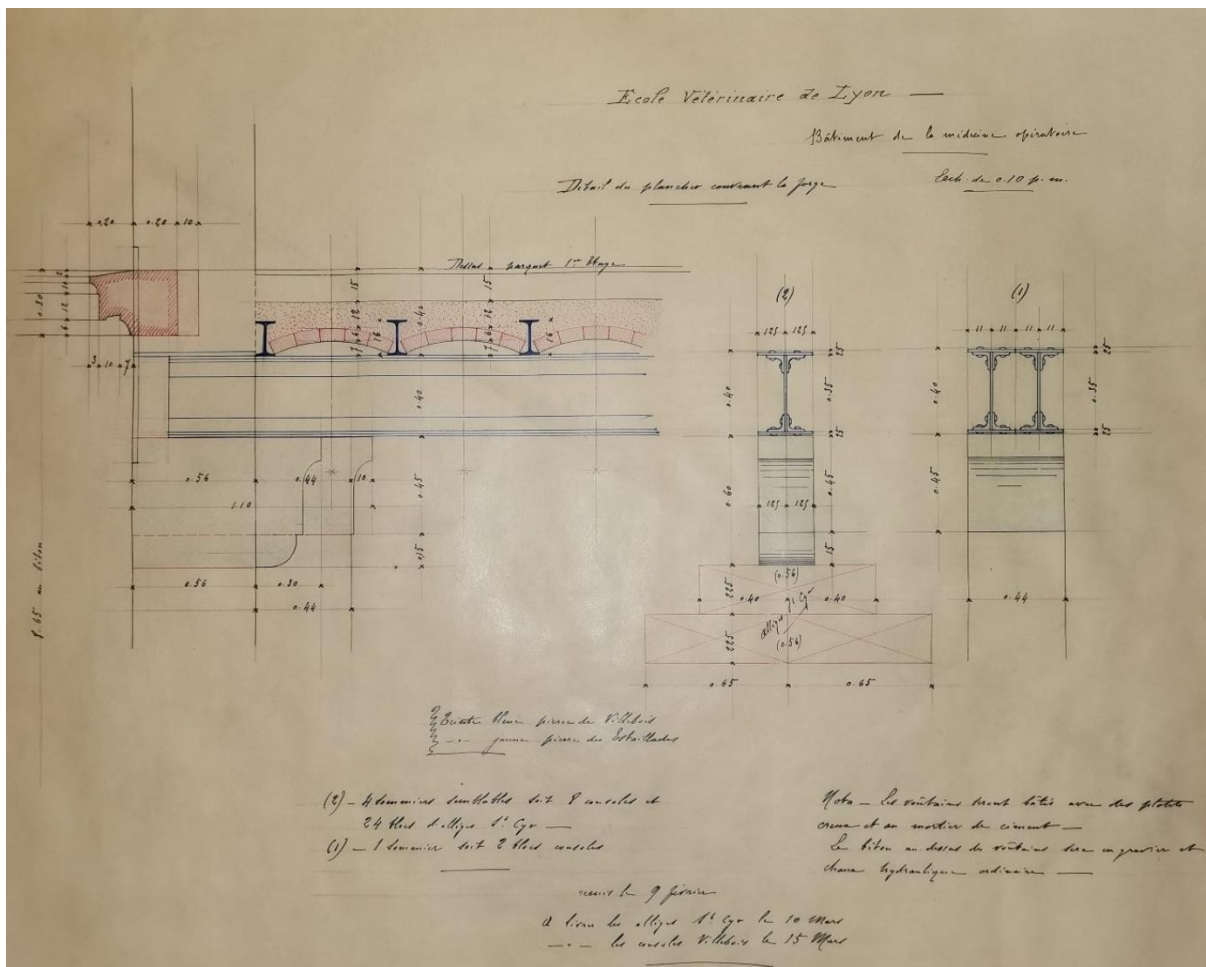 Ecole Vétérinaire de Lyon —
Bâtiment de la médecine opératoire
Détail du plancher couvrant la forge
Ech. de 0.10 p. m.
0.20 0.20 10
Dessus parquet 1er Etage
(2)
(1)
15 15
12 12
0.40
16 16
6 6
7 7
125 125
11 11 11 11
25
0.30
2
12
6
3 10 7
0.40
0.40
0.35
25
0.40
0.35
25
0.56 0.44 10
1.10
0.45
0.15
0.60
0.45
125 125
0.45
15
0.56 0.30
0.44
225
(0.56)
0.40 0.40
St Cyr
225
(0.56)
0.65 0.65
0.44
Teinte bleue pierre de Villebois
—"— jaune pierre des Estaillades
(2) — 4 sommiers semblables soit 8 consoles et
24 blocs d'alliges St Cyr —
(1) — 1 sommier soit 2 blocs consoles
Nota — Les voûtains seront bâtis avec des
creux et au mortier de ciment —
Le béton au dessus des voûtains sera en gravier et
chaux hydraulique ordinaire —
remis le 9 février
à livrer les alliges St Cyr le 10 Mars
—"— les consoles Villebois le 15 Mars